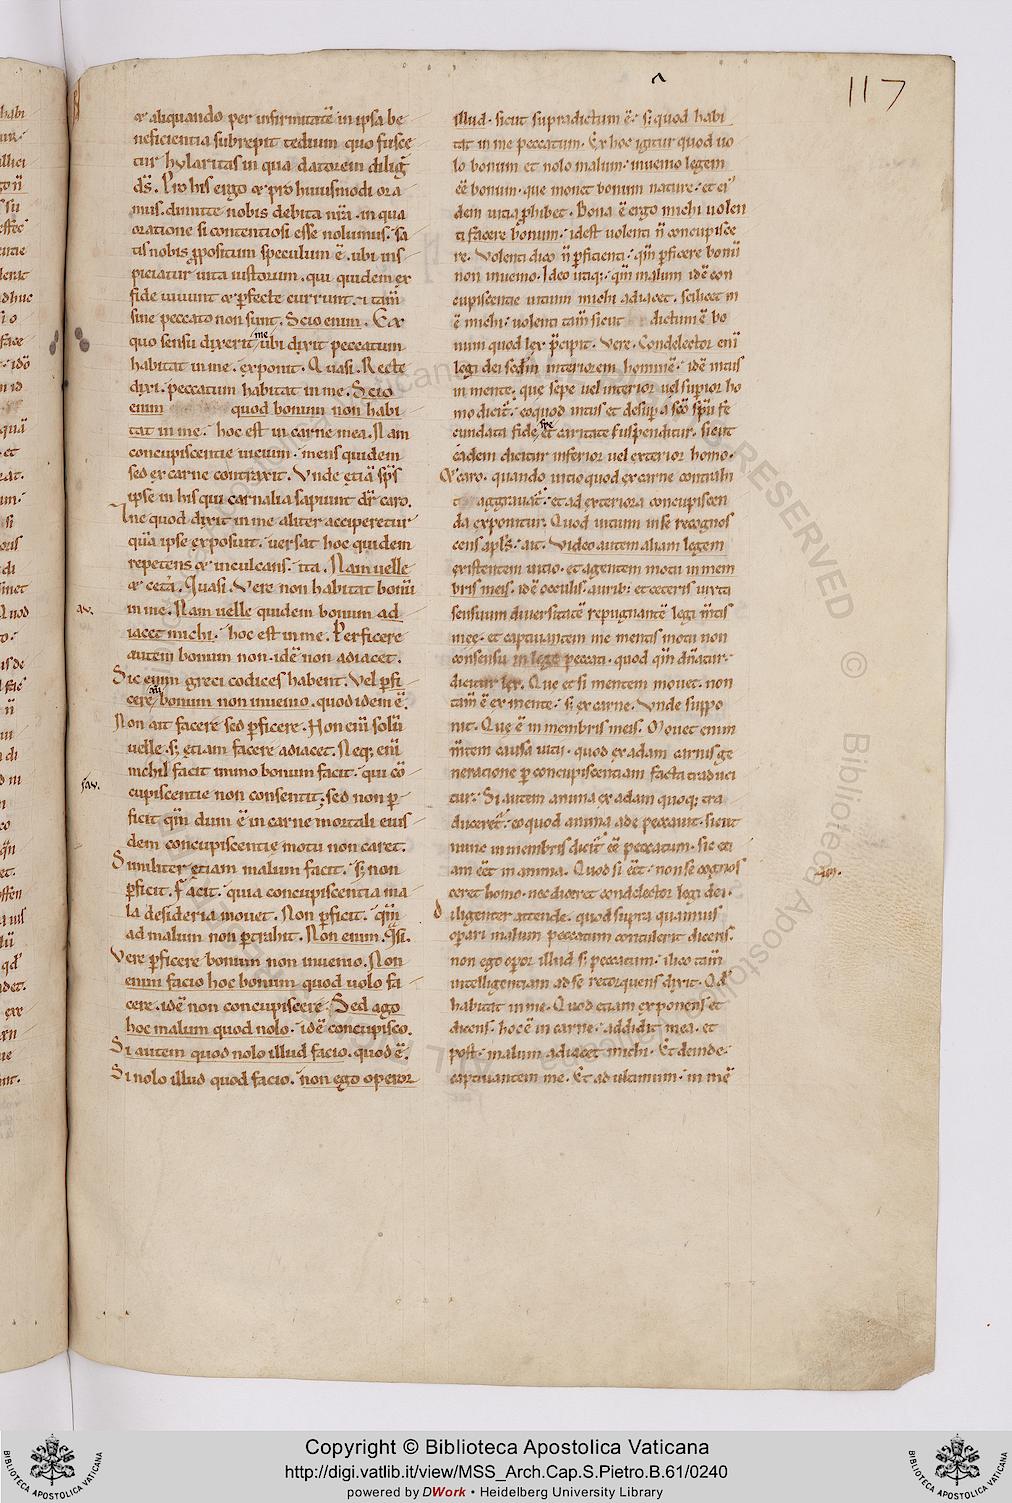 117
& aliquando per infirmitatē in ipsa be
neficientia subrepit tedium quo fusce
tur hylaritas in qua datorem diligͥt
d̄s. Pro his ergo & pro huiusmodi ora
mus. dimitte nobis debita nr̄a. in qua
oratione si contentiosi esse nolumus. sa
tis nobis ꝓpositum speculum ē. ubi ins
piciatur uita iustorum. qui quidem ex
fide uiuunt & ꝑfecte currunt. & tam̄
sine peccato non sunt. Scio enim. Ex
quo sensu dixerit me ubi dixit peccatum
habitat in me. exponit. Quasi. Recte
dixi. peccatum habitat in me. Scio
enim quod bonum non habi
tat in me. hoc est in carne mea. Nam
concupiscentie uicium. mens quidem
sed ex carne contraxit. Vnde etiā sp̄s
ipse in his qui carnalia sapiunt dr̄ caro.
Ine quod dixit in me aliter acciperetur
quā ipse exposuit. uersat hoc quidem
repetens & inculcans. ita. Nam uelle
& cetā. Quasi. Vere non habitat bonū
in me. Nam uelle quidem bonum ad
iacet michi. hoc est in me. Perficere
autem bonum non. idē non adiacet.
Sic enim greci codices habent. Vel ꝑfi
cere au bonum non inuenio. quod idem ē.
Non ait facere sed ꝑficere. Non enī solū
uelle. sꝫ etiam facere adiacet. Neqꝫ enī
nichil facit immo bonum facit. qui cō
cupiscentie non consentit. sed non ꝑ
ficit qm̄ dum ē in carne mortali eius
dem concupiscentie motu non caret.
Similiter etiam malum facit. sꝫ non
ꝑficit. Facit. quia concupiscentia ma
la desideria mouet. Non ꝑficit. qm̄
ad malum non ꝑtrahit. Non enim. Qͣsi.
Vere ꝑficere bonum non inuenio. Non
enim facio hoc bonum quod uolo fa
cere. idē non concupiscere. Sed ago
hoc malum quod nolo. idē concupisco.
Si autem quod nolo illud facio. quod ē.
Si nolo illud quod facio. non ego operor
illud. sicut supradictum ē. sꝫ quod habi
tat in me peccatum. Ex hoc igitur quod uo
lo bonum et nolo malum. inuenio legem
eē bonum. que monet bonum nature. et eiꝰ
dem uitia ꝓhibet. Bona ē ergo michi uolen
ti facere bonum. idest uolenti n̄ concupisce
re. Volenti dico n̄ ꝑficienti. qm̄ ꝑficere bonū
non inuenio. Ideo utiqꝫ. qm̄ malum idē con
cupiscentie uitium michi adiacet. scilicet in
ē michi. uolenti tam̄ sicut dictum ē bo
num quod lex p̄cipit. Vere. Condelector enī
legi dei scdm̄ interiorem hominē. idē intus
in mente. que sepe uel interior uel superior ho
mo dicit̄. eoquod intus et desup̄ a sc̄o sp̄u fe
cundata fide spe et caritate suspenditur. sicut
eadem dicitur inferior uel exterior homo.
& caro. quando uitio quod ex carne contrahi
t aggrauat̄. et ad exteriora concupiscen
da exponitur. Quod uitium in se recognos
cens apl̄s. ait. Video autem aliam legem
existentem uitio. et agentem motu in mem
bris meis. idē occulis. aurib; et ceteris iuxta
sensuum diuersitatē repugnantē legi m̄tis
meę. et captiuantem me mentis motu non
consensu in lege peccati. quod qm̄ dn̄atur.
dicitur lex. Que et si mentem mouet. non
tam̄ ē ex mente. sꝫ ex carne. Vnde suppo
nit. Que ē in membris meis. Mouet enim
m̄tem causa uitii. quod ex adam carnis ge
neratione ꝑ concupiscentiam facta traduci
tur. Si autem anima ex adam quoqꝫ tra
duceret̄. eoquod anima ade peccauit. sicut
nunc in membris dicit̄ eē peccatum. sic eti
am eēt in anima. Quod si eēt. non se cognos
ceret homo. nec diceret condelector legi dei.
diligenter attende. quod supra quamuis
operari malum peccatum contulerit dicens.
non ego operor illud sꝫ peccatum. ilico tam̄
intelligentiam ad se retorquens dixit. Qđ
habitat in me. Quod etiam exponens et
dicens. hoc ē in carne. addidit mea. et
post. malum adiacet michi. Et deinde.
captiuantem me. Et ad ultimum. in mē
av.
Copyright © Biblioteca Apostolica Vaticana
http://digi.vatlib.it/view/MSS_Arch.Cap.S.Pietro.B.61/0240
powered by DWork • Heidelberg University Library